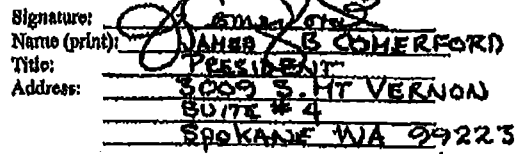 Signature:
Name (print): JAMES B COMERFORD
Title: PRESIDENT
Address: 3009 S. MT VERNON
SUITE # 4
SPOKANE WA 99223